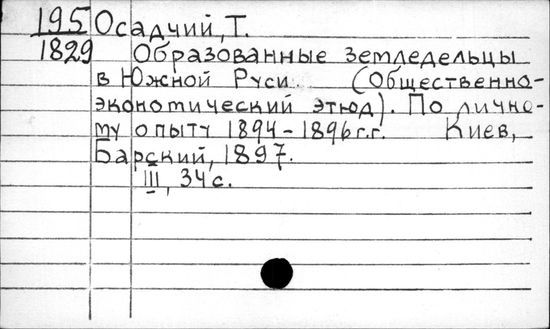 195 Осадчий, Т.
1829 Образованные земледельцы
в Южной Руси (Общественно-
экономический этюд). По лично-
му опыту 1894-1896 г.г. Киев,
Барский, 1897.
III, 34 с.